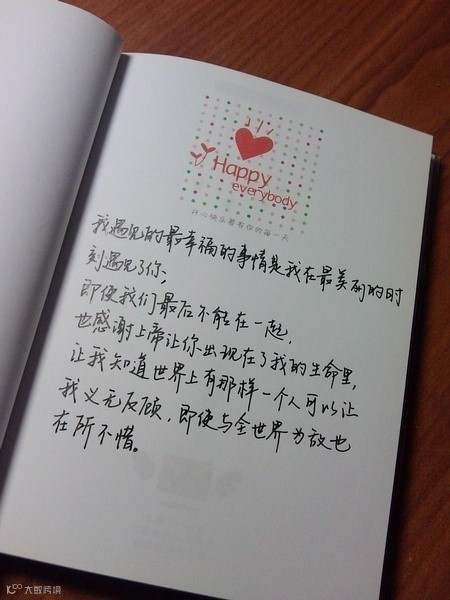 Happy
everybody
开心快乐着有你的每一天
我遇见的最幸福的事情是我在最美丽的时
刻遇见了你，
即使我们最后不能在一起，
也感谢上帝让你出现在了我的生命里，
让我知道世界上有那样一个人可以让
我义无反顾，即使与全世界为敌也
在所不惜。
大数跨境